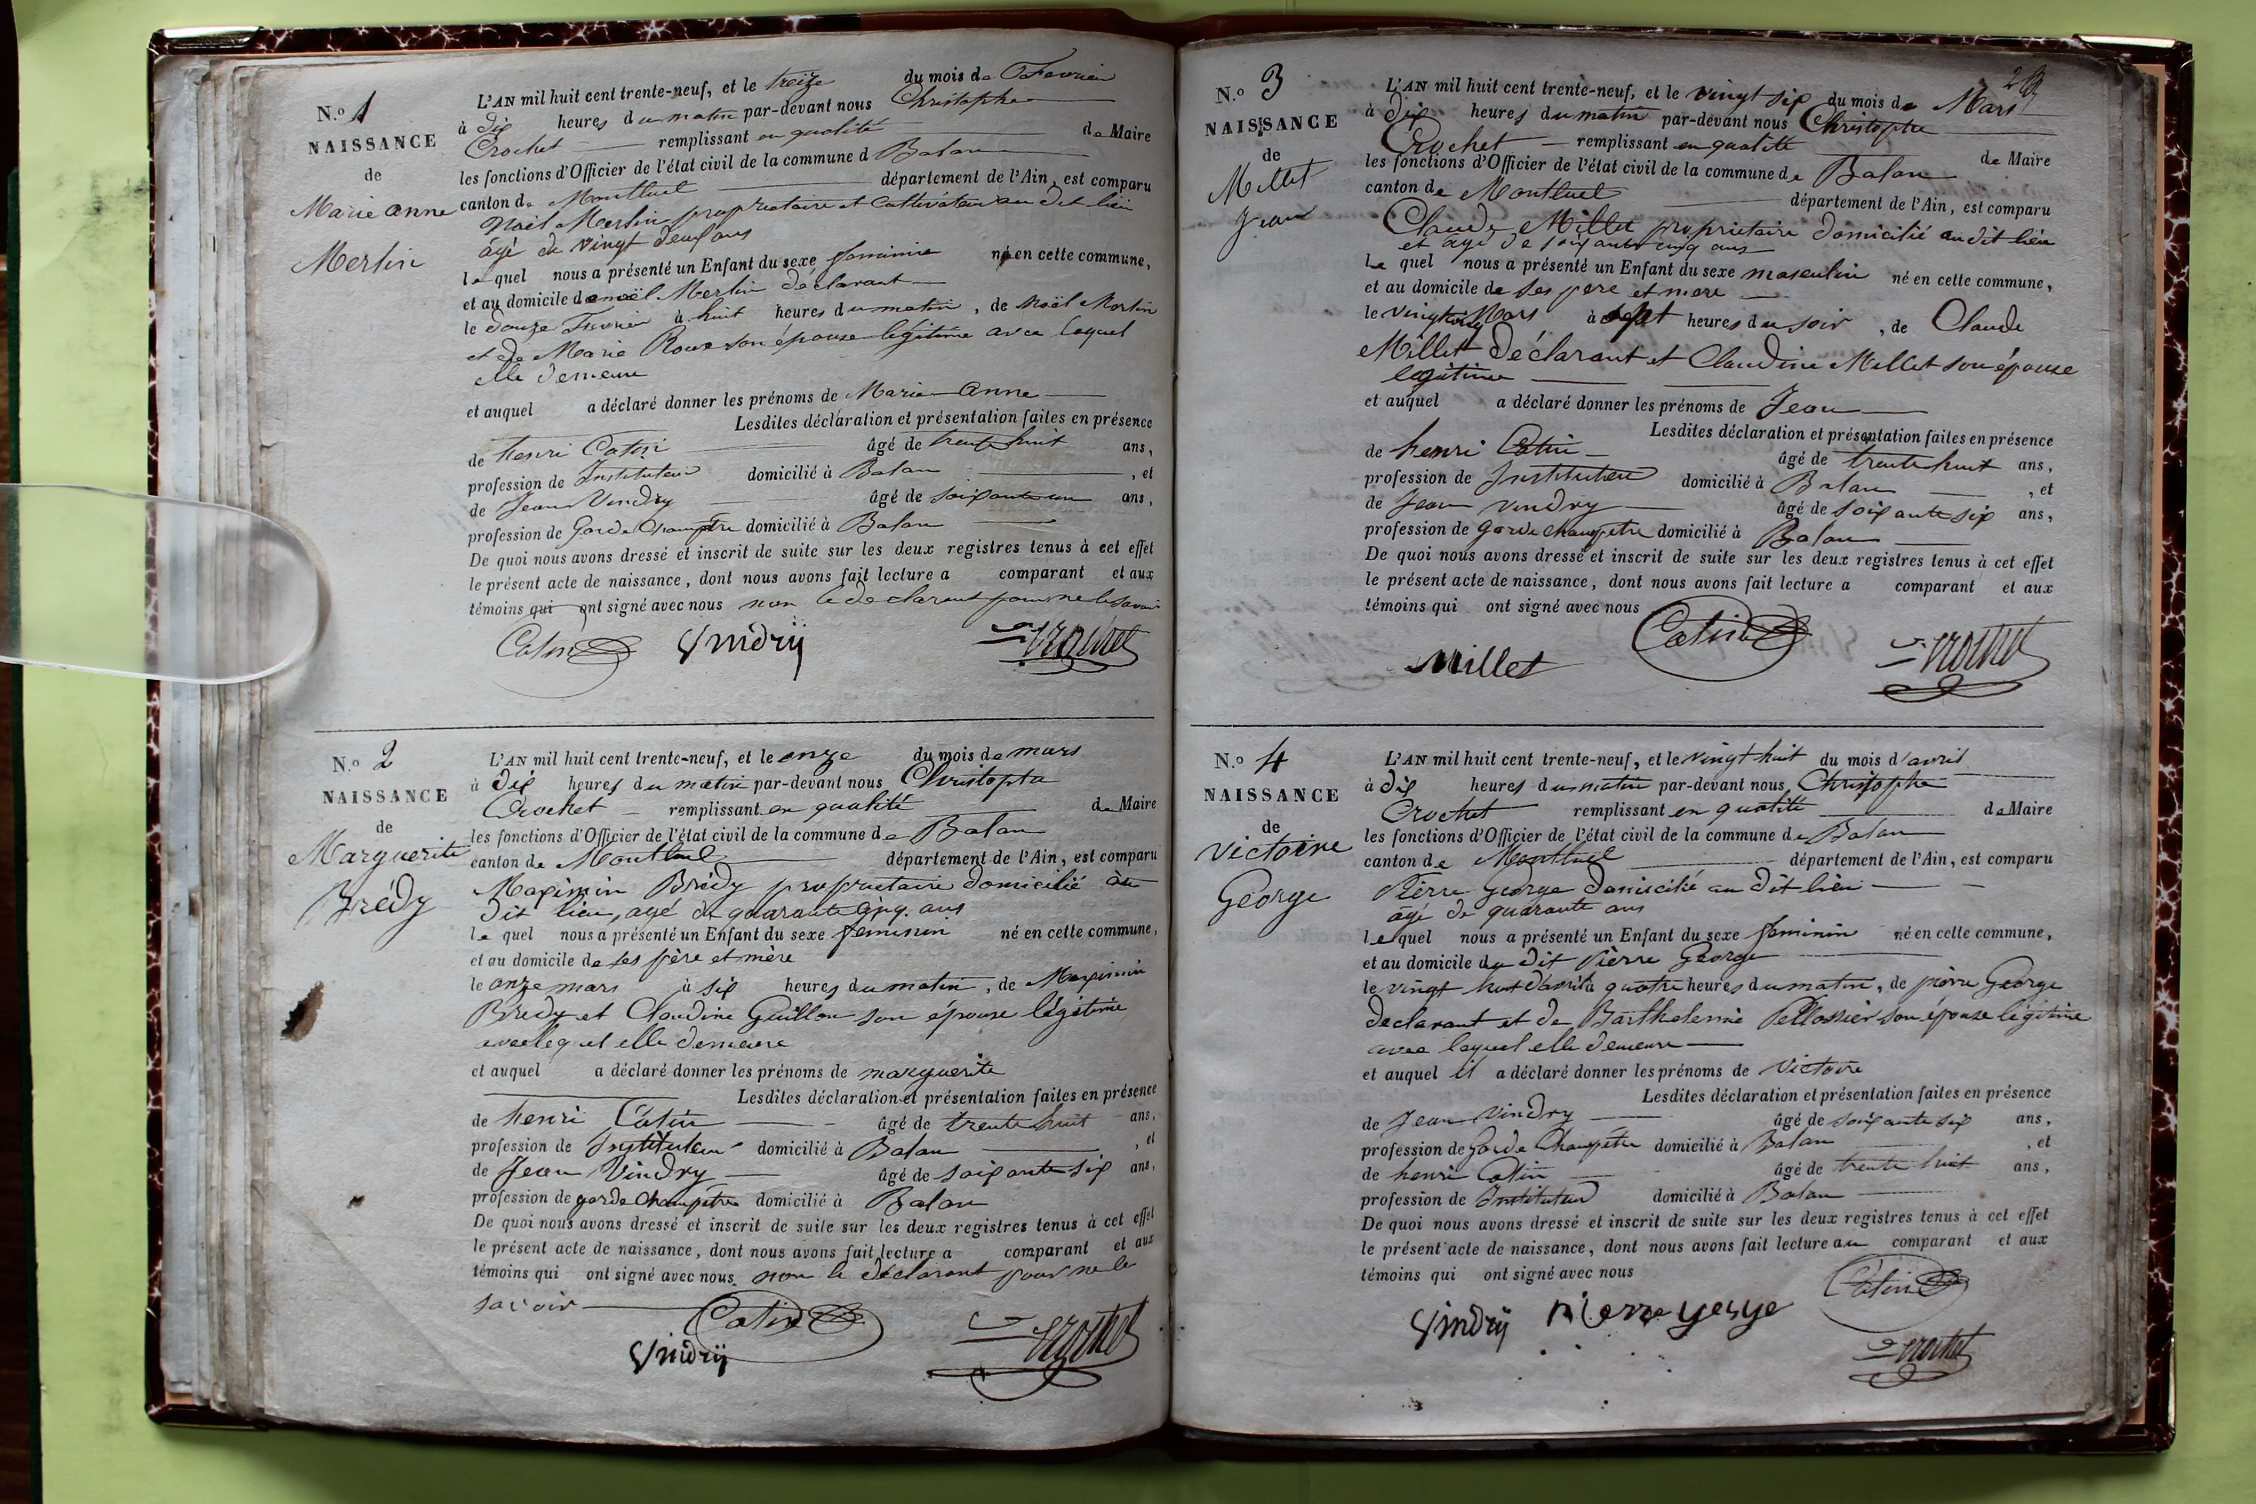 N.o 1
NAISSANCE
de
Marie anne
Merlin
L'AN mil huit cent trente-neuf, et le treize du mois de Fevrier
à dix heures du matin par-devant nous Christophe
Crochet remplissant en qualité de Maire
les fonctions d'Officier de l'état civil de la commune d Balan
canton de Montluel département de l'Ain, est comparu
Noël Merlin propriétaire et Cultivateur au dit lieu
âgé de vingt deux ans
le quel nous a présenté un Enfant du sexe feminin né en cette commune,
et au domicile de noël Merlin déclarant
le douze Fevrier à huit heures du matin, de Noël Merlin
et de Marie Roux son épouse légitime avec lequel
elle demeure
et auquel a déclaré donner les prénoms de Marie Anne
Lesdites déclaration et présentation faites en présence
de henri Catin âgé de trente huit ans,
profession de Instituteur domicilié à Balan, et
de Jean Vindry âgé de soixante ans,
profession de Garde Champêtre domicilié à Balan
De quoi nous avons dressé et inscrit de suite sur les deux registres tenus à cet effet
le présent acte de naissance, dont nous avons fait lecture a comparant et aux
témoins qui ont signé avec nous non le declarant pour ne le savoir
Catin Vindry Crochet
N.o 2
NAISSANCE
de
Marguerite
Brédy
L'AN mil huit cent trente-neuf, et le onze du mois de mars
à dix heures du matin par-devant nous Christophe
Crochet remplissant en qualité de Maire
les fonctions d'Officier de l'état civil de la commune de Balan
canton de Montluel département de l'Ain, est comparu
Maximin Brédy propriétaire domicilié au
dit lieu, agé de quarante cinq ans
le quel nous a présenté un Enfant du sexe feminin né en cette commune,
et au domicile de ses père et mère
le onze mars à six heures du matin, de Maximin
Brédy et Claudine Guillon son épouse légitime
avec lequel elle demeure
et auquel a déclaré donner les prénoms de marguerite
Lesdites déclaration et présentation faites en présence
de henri Catin âgé de trente huit ans,
profession de Instituteur domicilié à Balan, et
de Jean Vindry âgé de soixante six ans,
profession de garde Champêtre domicilié à Balan
De quoi nous avons dressé et inscrit de suite sur les deux registres tenus à cet effet
le présent acte de naissance, dont nous avons fait lecture a comparant et aux
témoins qui ont signé avec nous. non le déclarant pour ne le
savoir Catin
Vindry Crochet
N.o 3
NAISSANCE
de
Millet
Jean
L'AN mil huit cent trente-neuf, et le vingt six du mois de Mars
à dix heures du matin par-devant nous Christophe
Crochet remplissant en qualité de Maire
les fonctions d'Officier de l'état civil de la commune de Balan
canton de Montluel département de l'Ain, est comparu
Claude Millet propriétaire domicilié au dit lieu
et agé de soixante cinq ans
Le quel nous a présenté un Enfant du sexe masculin né en cette commune,
et au domicile de ses pere et mere
le vingt cinq Mars à sept heures du soir, de Claude
Millet déclarant et Claudine Millet son épouse
légitime
et auquel a déclaré donner les prénoms de Jean
Lesdites déclaration et présentation faites en présence
de henri Catin âgé de trente huit ans,
profession de Instituteur domicilié à Balan, et
de Jean vindry âgé de soixante six ans,
profession de garde champetre domicilié à Balan
De quoi nous avons dressé et inscrit de suite sur les deux registres tenus à cet effet
le présent acte de naissance, dont nous avons fait lecture a comparant et aux
témoins qui ont signé avec nous Catin
Millet Crochet
N.o 4
NAISSANCE
de
victoire
George
L'AN mil huit cent trente-neuf, et le vingt huit du mois d'avril
à dix heures du matin par-devant nous, Christophe
Crochet remplissant en qualité de Maire
les fonctions d'Officier de l'état civil de la commune de Balan
canton de Montluel département de l'Ain, est comparu
Pierre George domicilié au dit lieu
âgé de quarante ans
Le quel nous a présenté un Enfant du sexe feminin né en cette commune,
et au domicile du dit Pierre George
le vingt huit d'avril à quatre heures du matin, de pierre George
declarant et de Barthelemie Pellossier son épouse légitime
avec lequel elle demeure
et auquel il a déclaré donner les prénoms de Victoire
Lesdites déclaration et présentation faites en présence
de Jean Vindry âgé de soixante six ans,
profession de Garde Champêtre domicilié à Balan, et
de henri Catin âgé de trente huit ans,
profession de Instituteur domicilié à Balan
De quoi nous avons dressé et inscrit de suite sur les deux registres tenus à cet effet
le présent acte de naissance, dont nous avons fait lecture au comparant et aux
témoins qui ont signé avec nous Catin
Vindry Pierre
Crochet